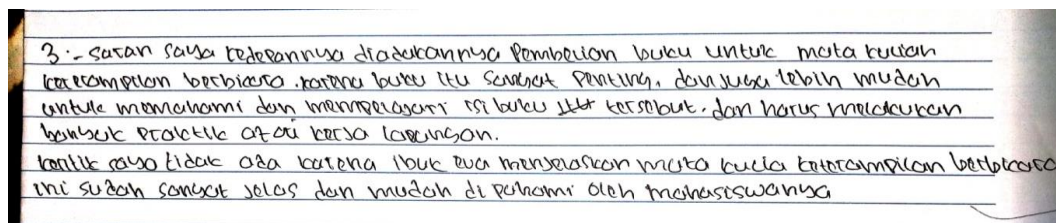 3.- Saran saya kedepannya diadakannya Pembelian buku untuk mata kuliah
keterampilan berbicara. karena buku itu sangat penting, dan juga lebih mudah
untuk memahami dan mempelajari isi buku tersebut. dan harus melakukan
banyak praktik atau kerja lapangan.
kritik saya tidak ada karena Ibuk eva menjelaskan mata kulia keterampilan berbicara
ini sudah sangat jelas dan mudah di pahami oleh mahasiswanya